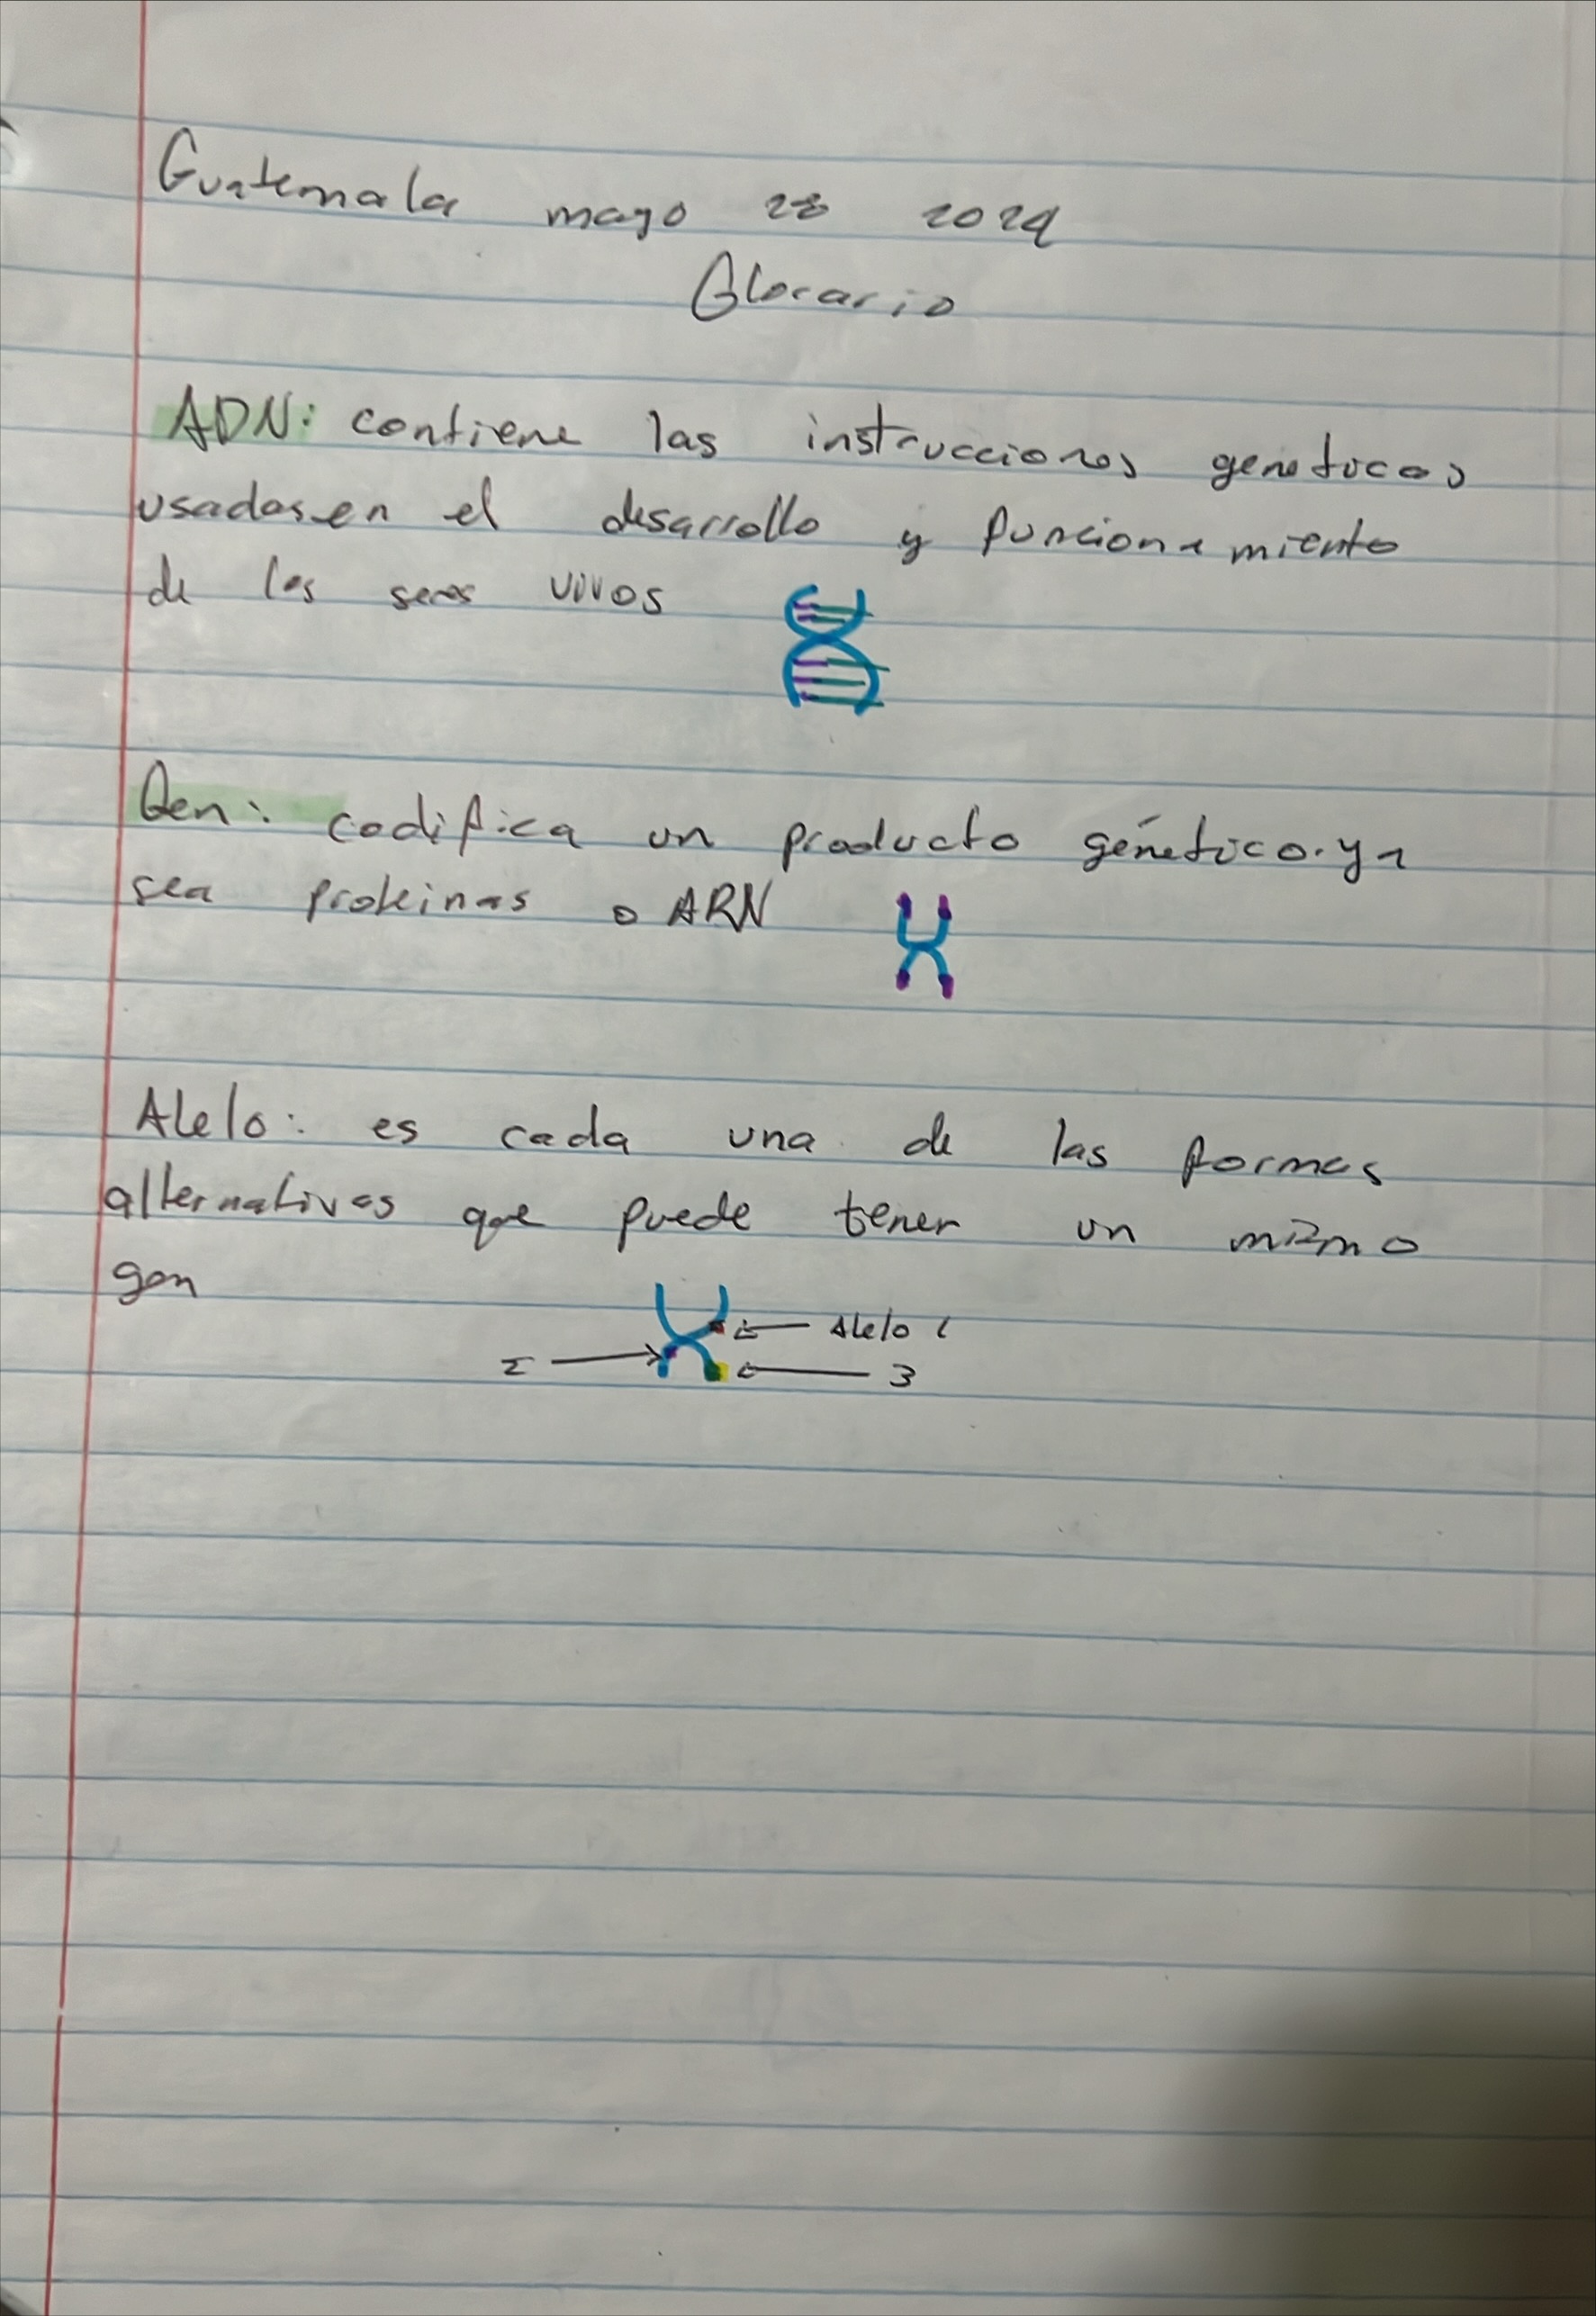 Guatemala mayo 28 2024
Glocario
ADN: contiene las instrucciones geneticas
usadas en el desarrollo y funcionamiento
de los seres vivos
Gen: codifica un producto génetico. ya
sea proteinas o ARN
Alelo: es cada una de las formas
alternativas que puede tener un mismo
gen
Alelo 1
2
3